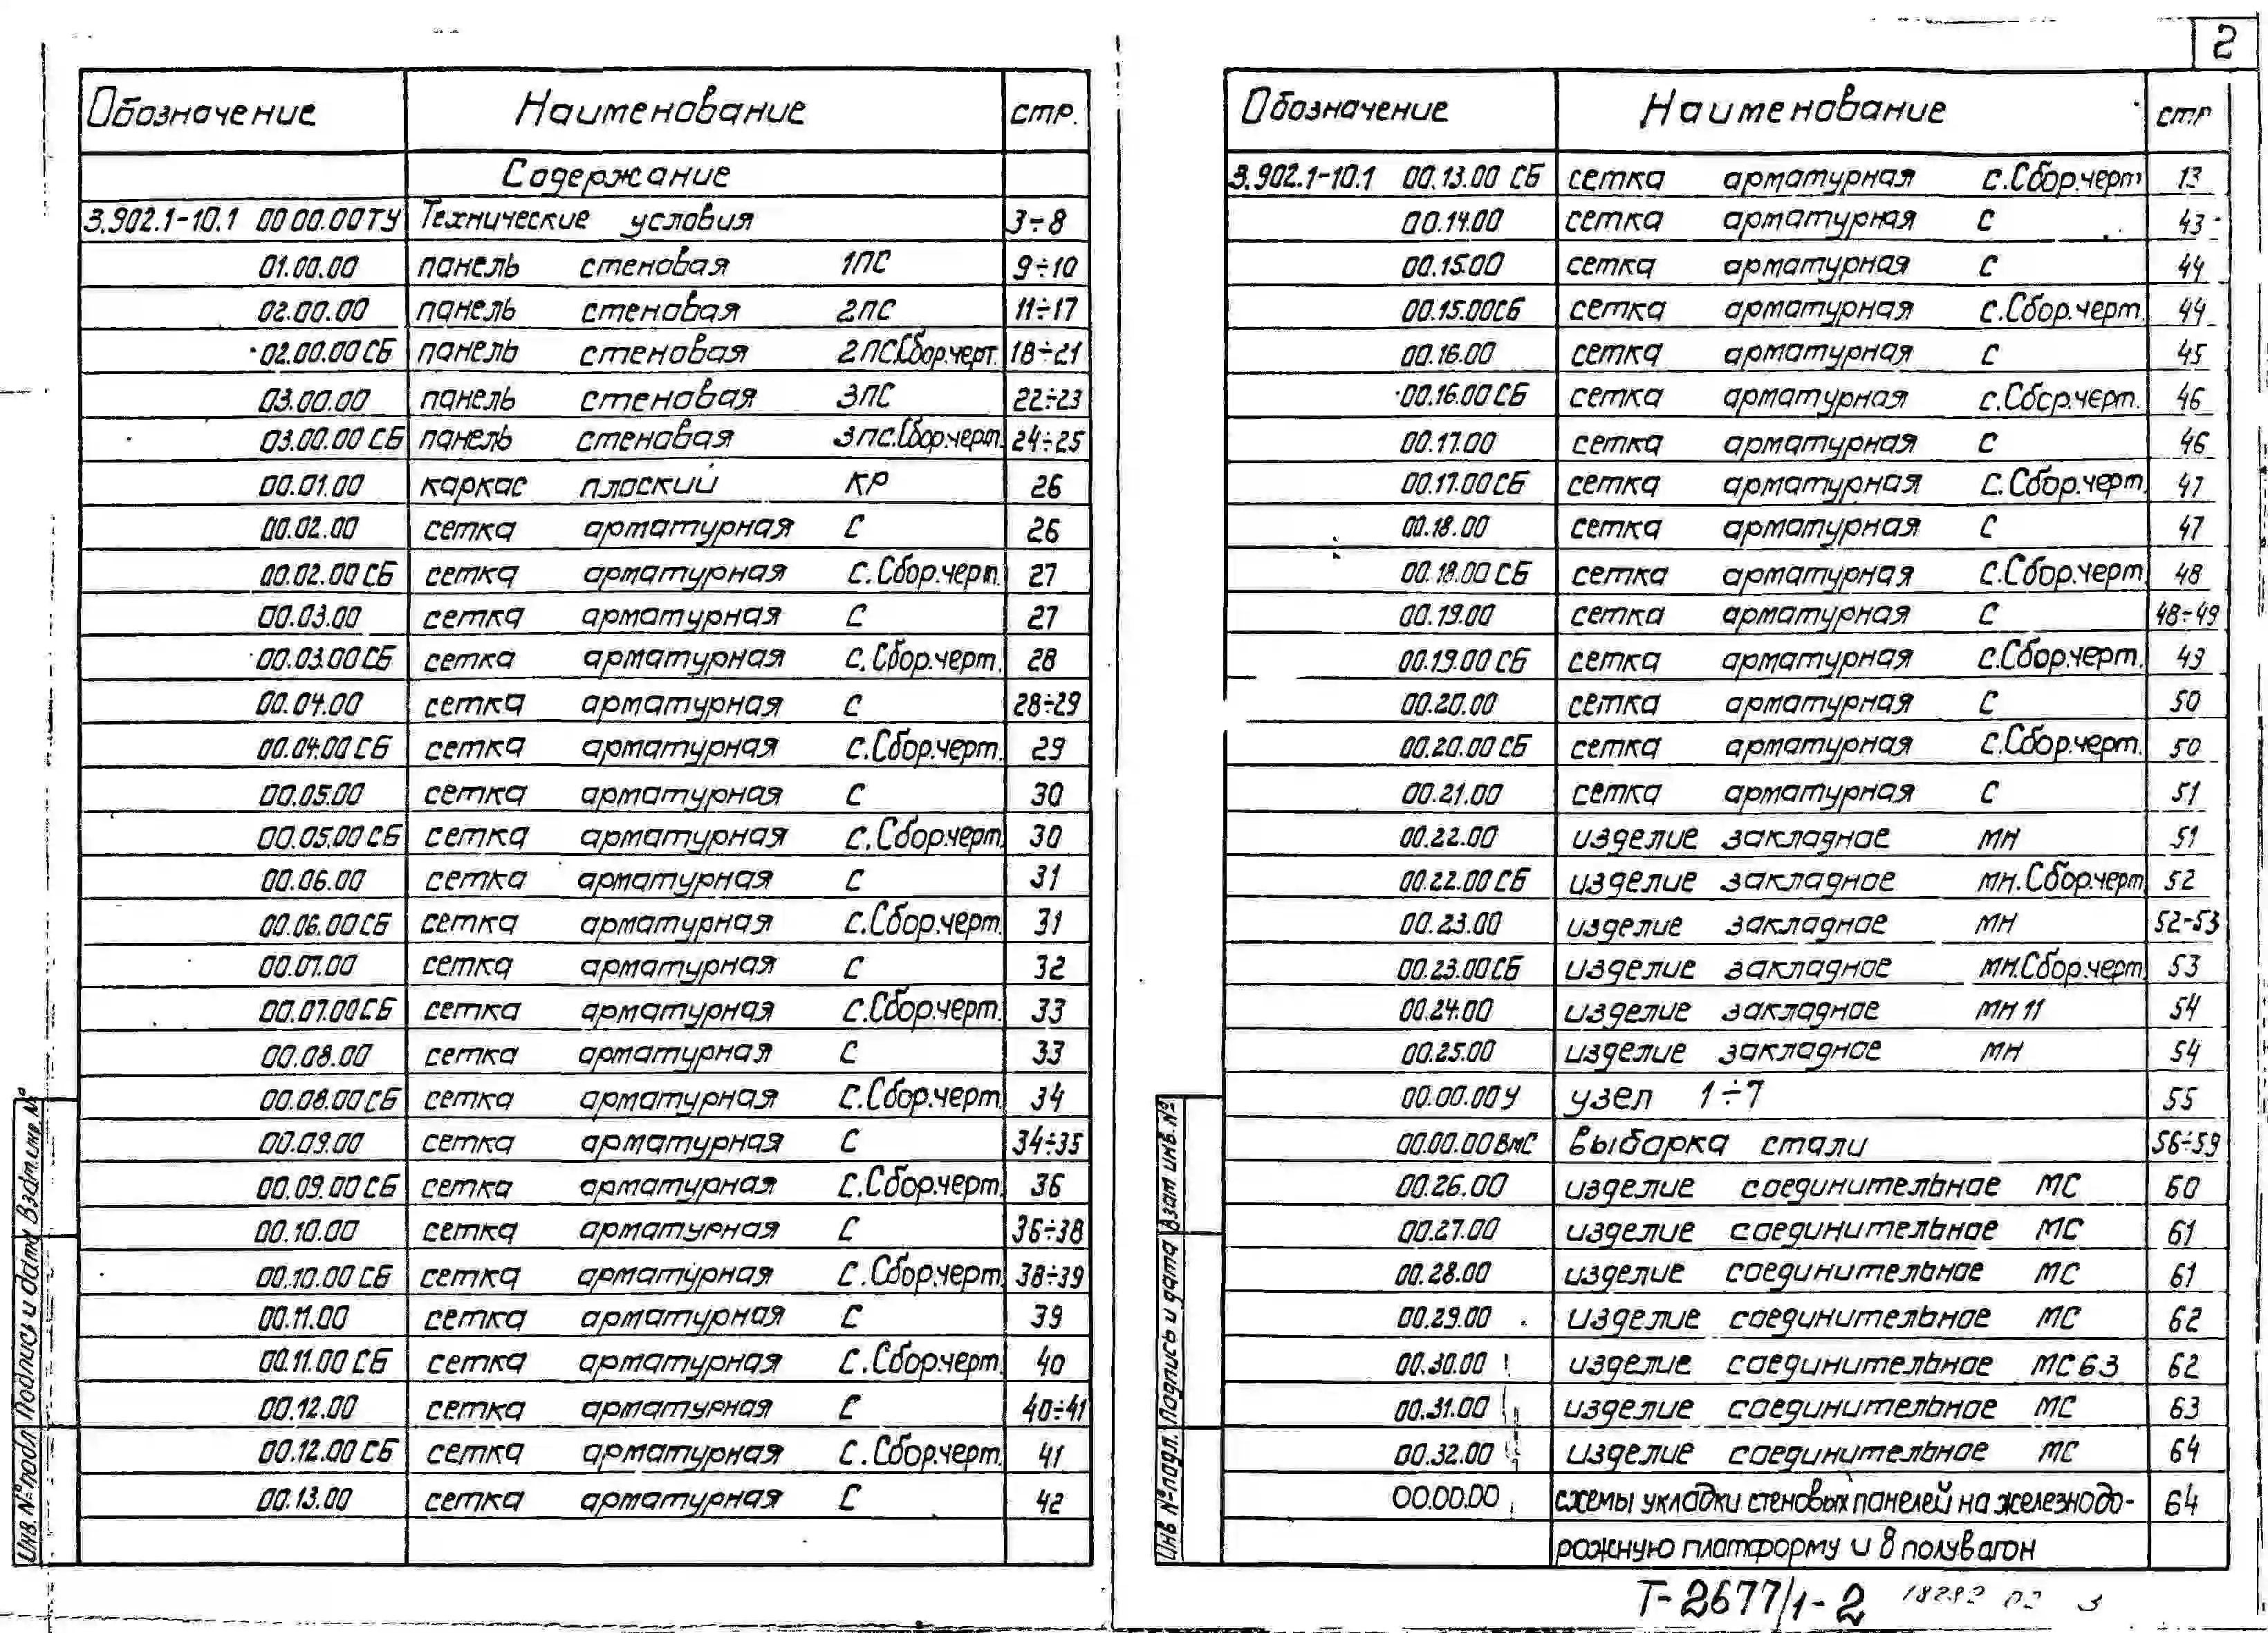 2
Обозначение Наименование стр.
Содержание
3.902.1-10.1 00 00.00ТУ Технические условия 3÷8
01.00.00 панель стеновая 1ПС 9÷10
02.00.00 панель стеновая 2ПС 11÷17
02.00.00СБ панель стеновая 2ПС.Сбор.черт. 18÷21
03.00.00 панель стеновая 3ПС 22÷23
03.00.00 СБ панель стеновая 3ПС.Сбор.черт. 24÷25
00.01.00 каркас плоский КР 26
00.02.00 сетка арматурная С 26
00.02.00 СБ сетка арматурная С.Сбор.черт. 27
00.03.00 сетка арматурная С 27
00.03.00СБ сетка арматурная С.Сбор.черт. 28
00.04.00 сетка арматурная С 28÷29
00.04.00 СБ сетка арматурная С.Сбор.черт. 29
00.05.00 сетка арматурная С 30
00.05.00 СБ сетка арматурная С.Сбор.черт. 30
00.06.00 сетка арматурная С 31
00.06.00СБ сетка арматурная С.Сбор.черт. 31
00.07.00 сетка арматурная С 32
00.07.00СБ сетка арматурная С.Сбор.черт. 33
00.08.00 сетка арматурная С 33
00.08.00СБ сетка арматурная С.Сбор.черт. 34
00.09.00 сетка арматурная С 34÷35
00.09.00СБ сетка арматурная С.Сбор.черт. 36
00.10.00 сетка арматурная С 36÷38
00.10.00 СБ сетка арматурная С.Сбор.черт. 38÷39
00.11.00 сетка арматурная С 39
00.11.00 СБ сетка арматурная С.Сбор.черт. 40
00.12.00 сетка арматурная С 40÷41
00.12.00 СБ сетка арматурная С.Сбор.черт. 41
00.13.00 сетка арматурная С 42
Инв.№подл Подпись и дата Взам.инв.№
Обозначение Наименование стр
3.902.1-10.1 00.13.00 СБ сетка арматурная С.Сбор.черт 13
00.14.00 сетка арматурная С 43
00.15.00 сетка арматурная С 44
00.15.00СБ сетка арматурная С.Сбор.черт. 44
00.16.00 сетка арматурная С 45
00.16.00СБ сетка арматурная С.Сбор.черт. 46
00.17.00 сетка арматурная С 46
00.17.00СБ сетка арматурная С.Сбор.черт. 47
00.18.00 сетка арматурная С 47
00.18.00 СБ сетка арматурная С.Сбор.черт 48
00.19.00 сетка арматурная С 48÷49
00.19.00 СБ сетка арматурная С.Сбор.черт. 49
00.20.00 сетка арматурная С 50
00.20.00 СБ сетка арматурная С.Сбор.черт. 50
00.21.00 сетка арматурная С 51
00.22.00 изделие закладное МН 51
00.22.00 СБ изделие закладное МН.Сбор.черт 52
00.23.00 изделие закладное МН 52-53
00.23.00СБ изделие закладное МН.Сбор.черт 53
00.24.00 изделие закладное МН 11 54
00.25.00 изделие закладное МН 54
00.00.00 У узел 1÷7 55
00.00.00ВМС выборка стали 56÷59
00.26.00 изделие соединительное МС 60
00.27.00 изделие соединительное МС 61
00.28.00 изделие соединительное МС 61
00.29.00 изделие соединительное МС 62
00.30.00 изделие соединительное МС 63 62
00.31.00 изделие соединительное МС 63
00.32.00 изделие соединительное МС 64
00.00.00 схемы укладки стеновых панелей на железнодо- 64
рожную платформу и в полувагон
Инв №подл. Подпись и дата Взам инв.№
Т-2677/1-2 18292 02 3